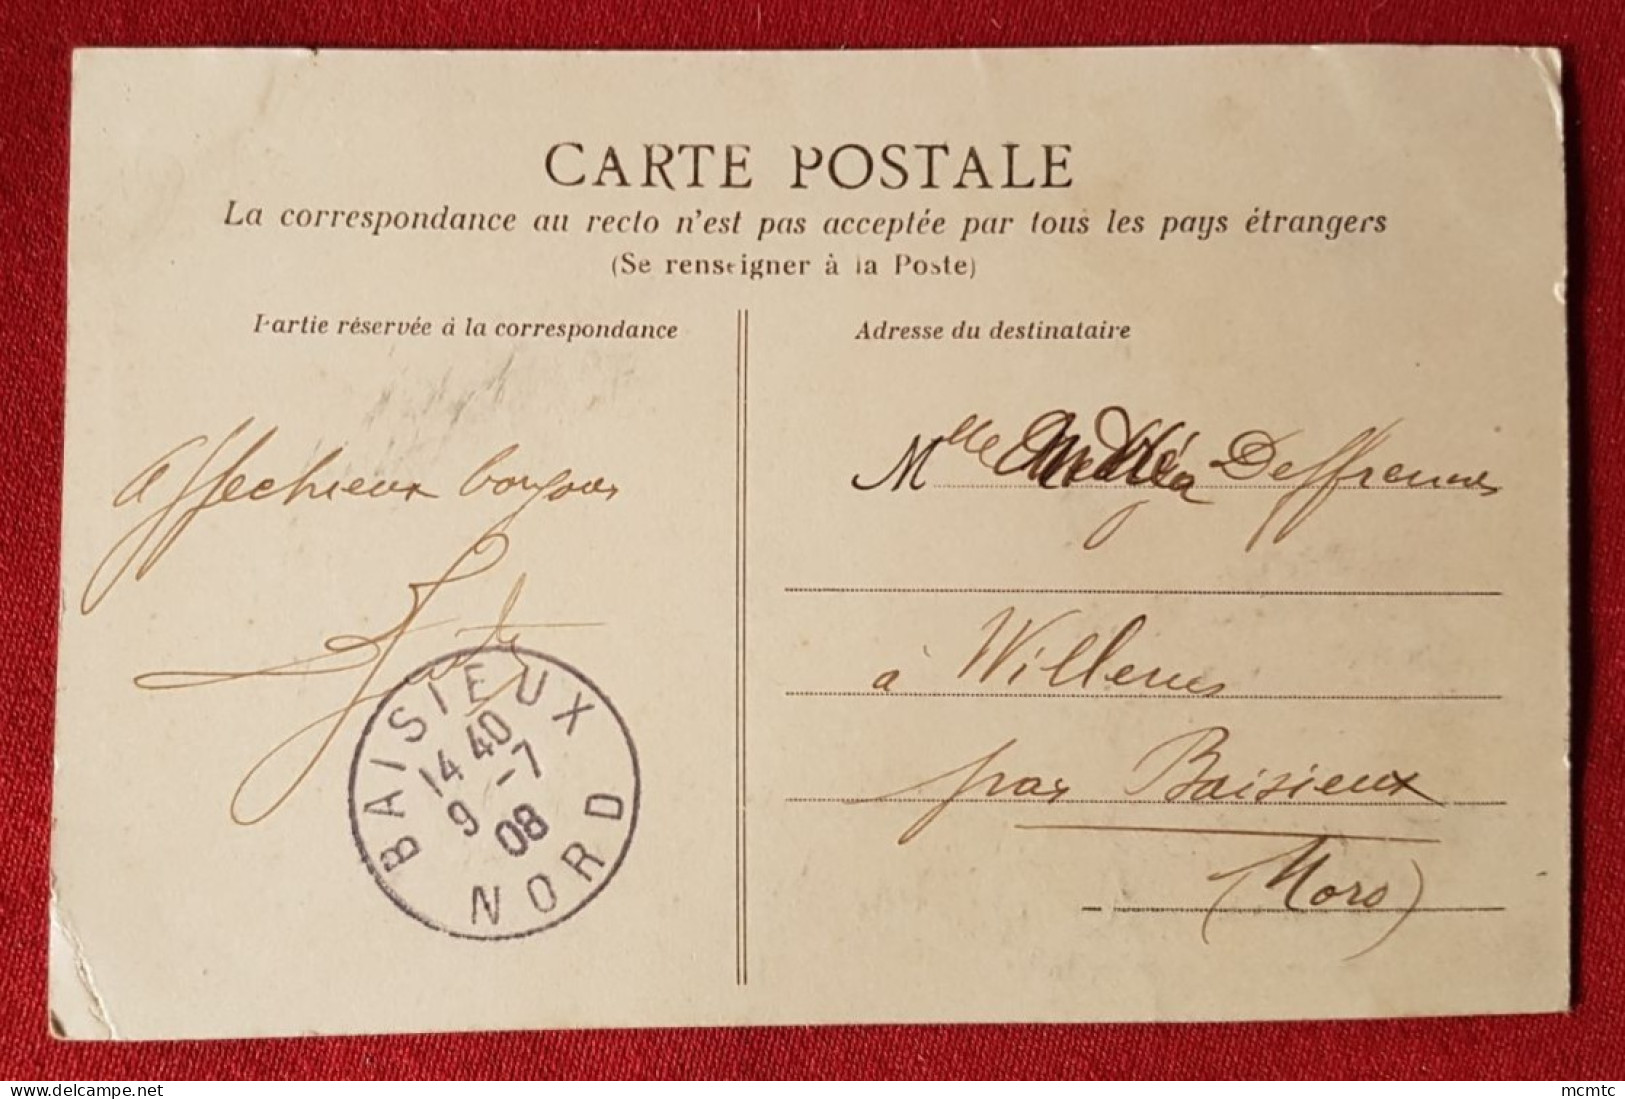 CARTE POSTALE
La correspondance au recto n'est pas acceptée par tous les pays étrangers
(Se renseigner à la Poste)
Partie réservée à la correspondance
Adresse du destinataire
Affectueux bonjours
Mlle Deffrennes
à Willems
par Baisieux
(Nord)
BAISIEUX
14 40
9 -7
08
NORD
delcampe.net
mcmtc